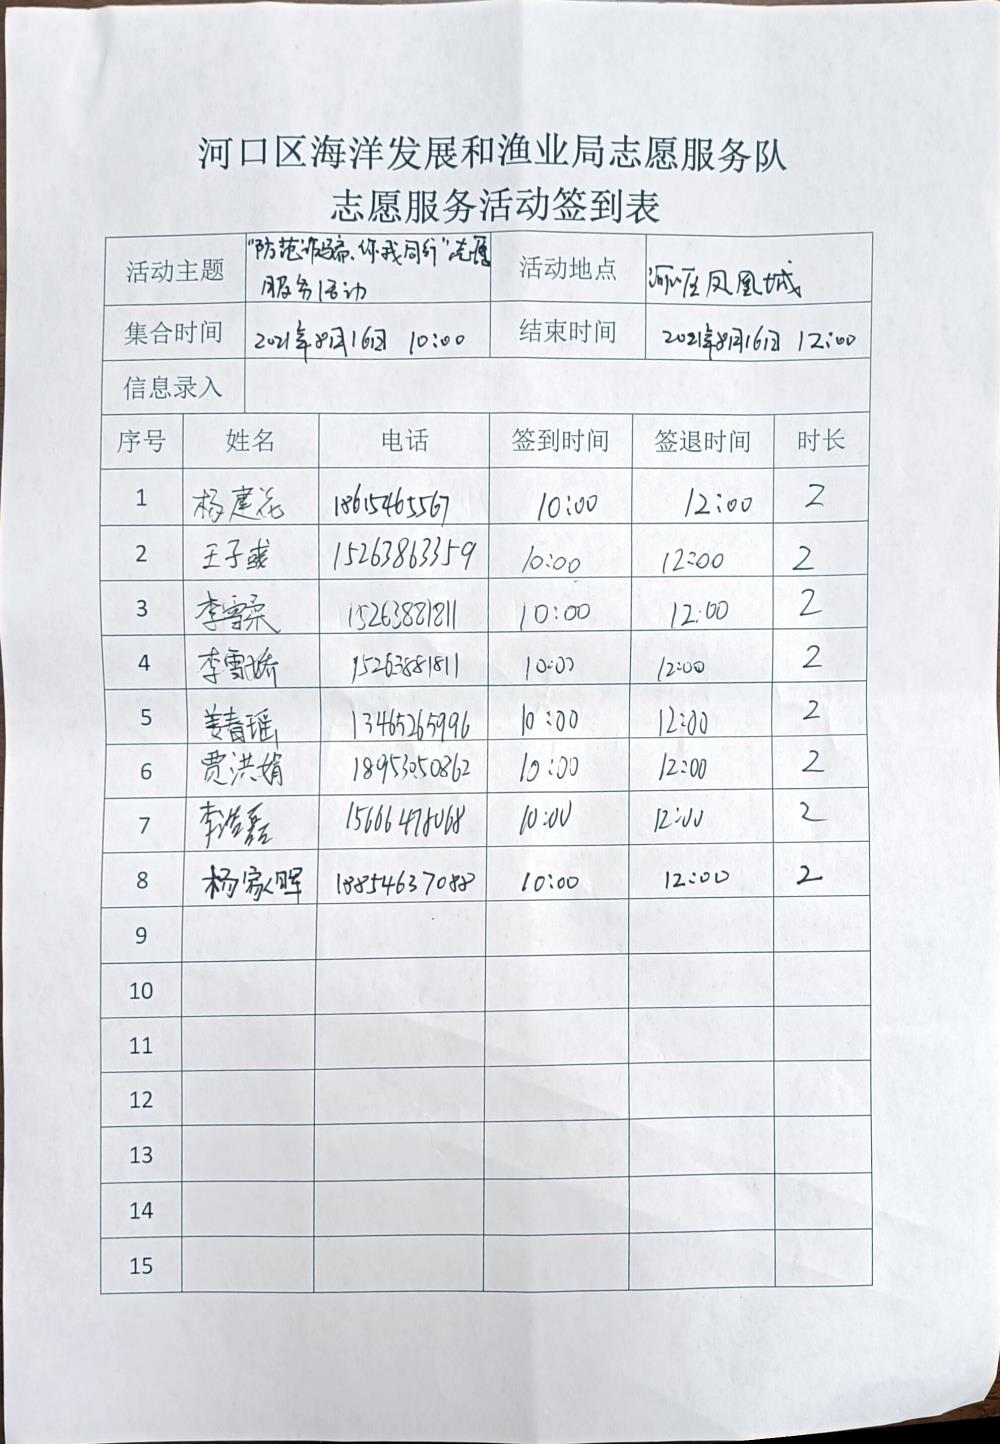 河口区海洋发展和渔业局志愿服务队
志愿服务活动签到表
活动主题 "防范诈骗、你我同行"志愿服务活动 活动地点 河口区凤凰城
集合时间 2021年8月16日 10:00 结束时间 2021年8月16日 12:00
信息录入
序号 姓名 电话 签到时间 签退时间 时长
1 杨建花 18615465567 10:00 12:00 2
2 王子彧 15263863359 10:00 12:00 2
3 李雪柔 15263881811 10:00 12:00 2
4 李雪娇 15263881811 10:00 12:00 2
5 姜春瑶 13465265996 10:00 12:00 2
6 贾洪娟 18953050862 10:00 12:00 2
7 李浩磊 15666478068 10:00 12:00 2
8 杨家晖 18854637088 10:00 12:00 2
9
10
11
12
13
14
15